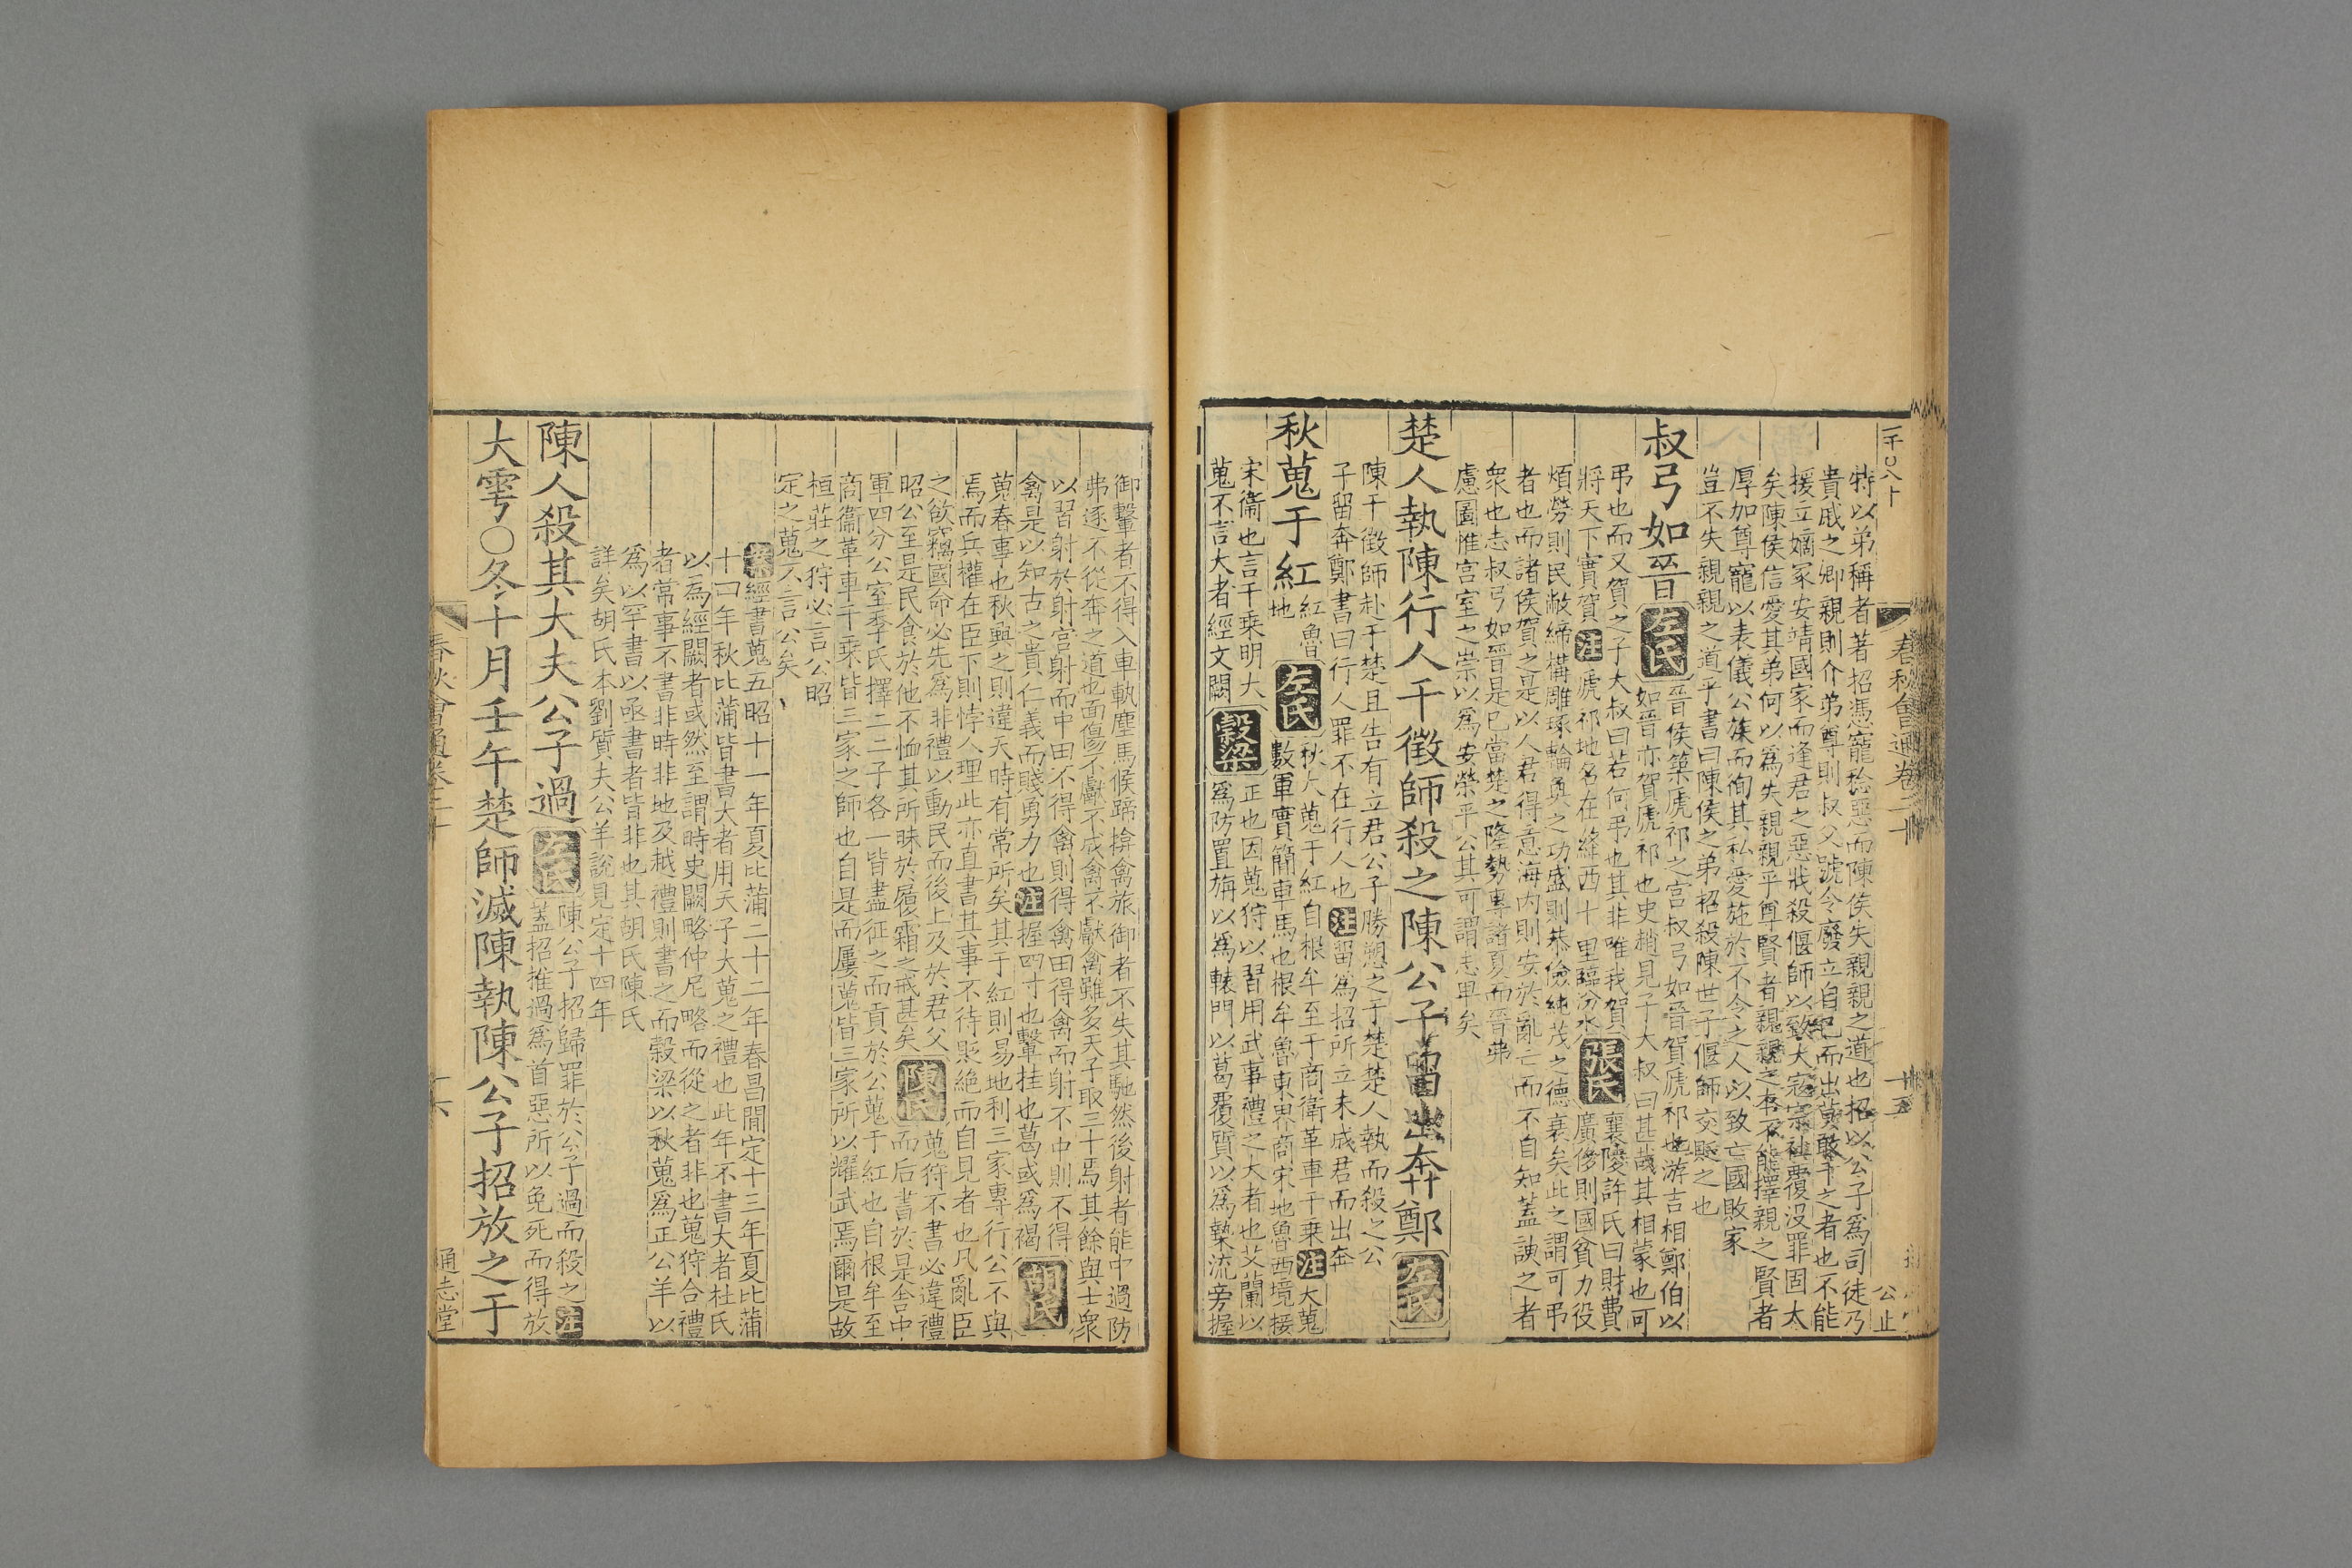 春秋會通卷二十
十五
特以弟稱者著招憑寵稔惡而陳侯失親親之道也招以公子爲司徒乃
貴戚之卿親則介弟尊則叔父號令廢立自己而出莫敢干之者也不能
援立嫡冢安靖國家而逢君之惡戕殺偃師以致大寇宗社覆没罪固大
矣陳侯信愛其弟何以爲失親親乎尊賢者親親之本不能擇親之賢者
厚加尊寵以表儀公族而徇其私愛施於不令之人以致亡國敗家
豈不失親親之道乎書曰陳侯之弟招殺陳世子偃師交貶之也
叔弓如晉
左氏
晉侯築虒祁之宫叔弓如晉賀虒祁也游吉相鄭伯以
如晉亦賀虒祁也史趙見子大叔曰甚哉其相蒙也可
弔也而又賀之子大叔曰若何弔也其非唯我賀
將天下實賀
注
虒祁地名在絳西十里臨汾水
張氏
襄陵許氏曰財費
廣侈則國貧力役
煩勞則民敝締構雕琢輪奐之功盛則恭儉純茂之德衰矣此之謂可弔
者也而諸侯賀之是以人君得意海内則安於亂亡而不自知蓋諛之者
衆也志叔弓如晉是已當楚之隆勢專諸夏而晉弗
慮圖惟宫室之崇以爲安榮平公其可謂志卑矣
楚人執陳行人干徵師殺之陳公子留出奔鄭
左氏
陳干徵師赴于楚且告有立君公子勝愬之于楚楚人執而殺之公
子留奔鄭書曰行人罪不在行人也
注
留爲招所立未成君而出奔
秋蒐于紅
紅魯
地
左氏
秋大蒐于紅自根牟至于商衛革車千乗
注
大蒐
數軍實簡車馬也根牟魯東界商宋地魯西境接
宋衞也言千乗明大
蒐不言大者經文闕
穀梁
正也因蒐狩以習用武事禮之大者也艾蘭以
爲防置旃以爲轅門以葛覆質以爲槷流旁握
御轚者不得入車軌塵馬候蹄揜禽旅御者不失其馳然後射者能中過防
弗逐不從奔之道也面傷不獻不成禽不獻禽雖多天子取三十焉其餘與士衆
以習射於射宫射而中田不得禽則得禽田得禽而射不中則不得
禽是以知古之貴仁義而賤勇力也
注
握四寸也轚挂也葛或爲褐
胡氏
蒐春事也秋興之則違天時有常所矣其于紅則易地利三家專行公不與
焉而兵權在臣下則悖人理此亦直書其事不待貶絶而自見者也凡亂臣
之欲竊國命必先爲非禮以動民而後上及於君父
昭公至是民食於他不恤其所昧於履霜之戒甚矣
陳氏
蒐狩不書必違禮
而后書於是舍中
軍四分公室季氏擇二二子各一皆盡征之而貢於公蒐于紅也自根牟至
商衞革車千乗皆三家之師也自是而屢蒐皆三家所以耀武焉爾是故
桓莊之狩必言公昭
定之蒐不言公矣
經書蒐五昭十一年夏比蒲二十二年春昌間定十三年夏比蒲
十四年秋比蒲皆書大者用天子大蒐之禮也此年不書大者杜氏
以爲經闕者或然至謂時史闕略仲尼略而從之者非也蒐狩合禮
者常事不書非時非地及越禮則書之而穀梁以秋蒐爲正公羊以
爲以罕書以亟書者皆非也其胡氏陳氏
詳矣胡氏本劉質夫公羊説見定十四年
陳人殺其大夫公子過
左氏
陳公子招歸罪於公子過而殺之
注
蓋招推過爲首惡所以免死而得放
大雩○冬十月壬午楚師滅陳執陳公子招放之于
春秋會通卷二十
十六
通志堂